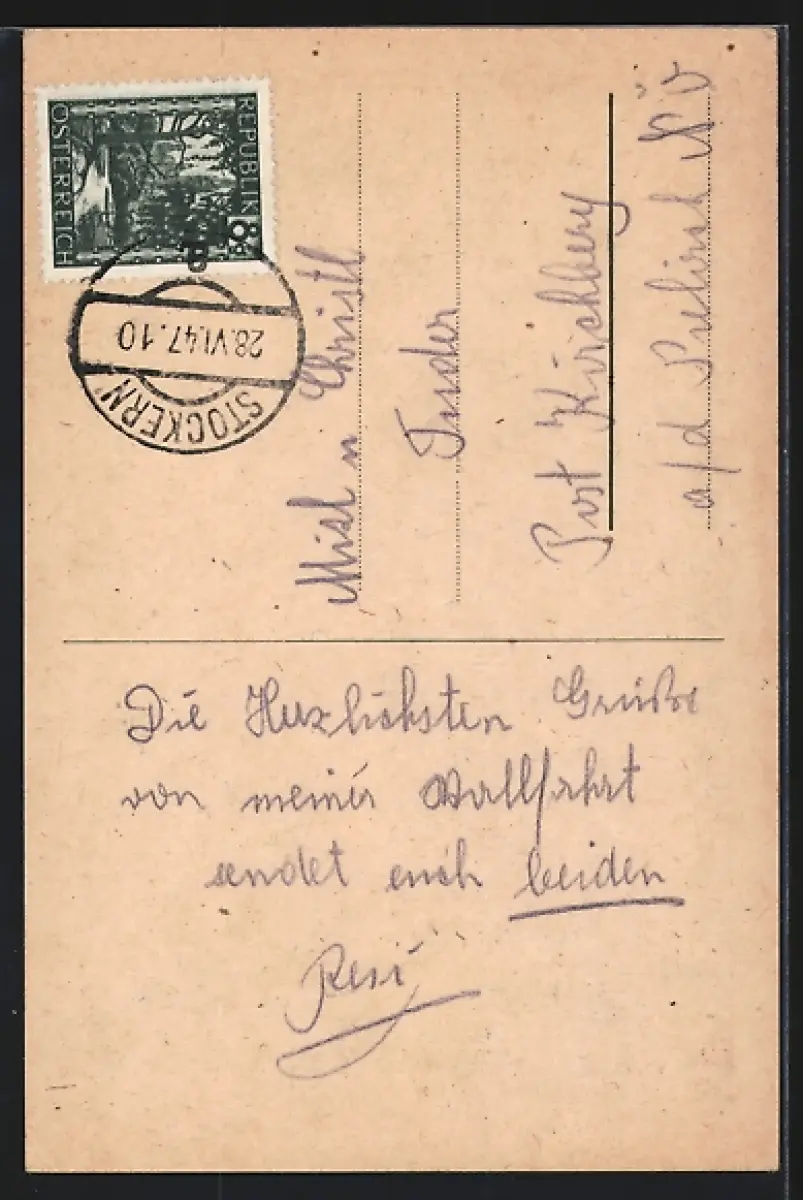 REPUBLIK
ÖSTERREICH
8
STOCKERN
28.VI.47.10
Misl u Christl
Tuder
Post Kirchberg
a/d NÖ
Die Herzlichsten Grüße
von meiner Wallfahrt
sendet euch beiden
Resi